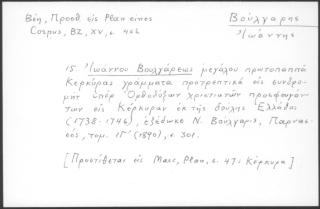 Βέη, Προσθ. εἰς Plan eines
Corpus, BZ, XV, σ. 486
Βούλγαρης
Ἰωάννης
15. Ἰωάννου Βουλγάρεως μεγάλου πρωτοπαππᾶ
Κερκύρας γράμματα προτρεπτικὰ εἰς συνδρο-
μὴν ὑπὲρ Ὀρθοδόξων χριστιανῶν προσφευγόν-
των εἰς Κέρκυραν ἐκ τῆς δούλης Ἑλλάδος
(1738-1746), ἐξέδωκε Ν. Βούλγαρις, Παρνασ-
σός, τομ. ΙΓ' (1890), σ. 301.
[Προστίθεται εἰς Marc, Plan, σ. 47: Κέρκυρα]